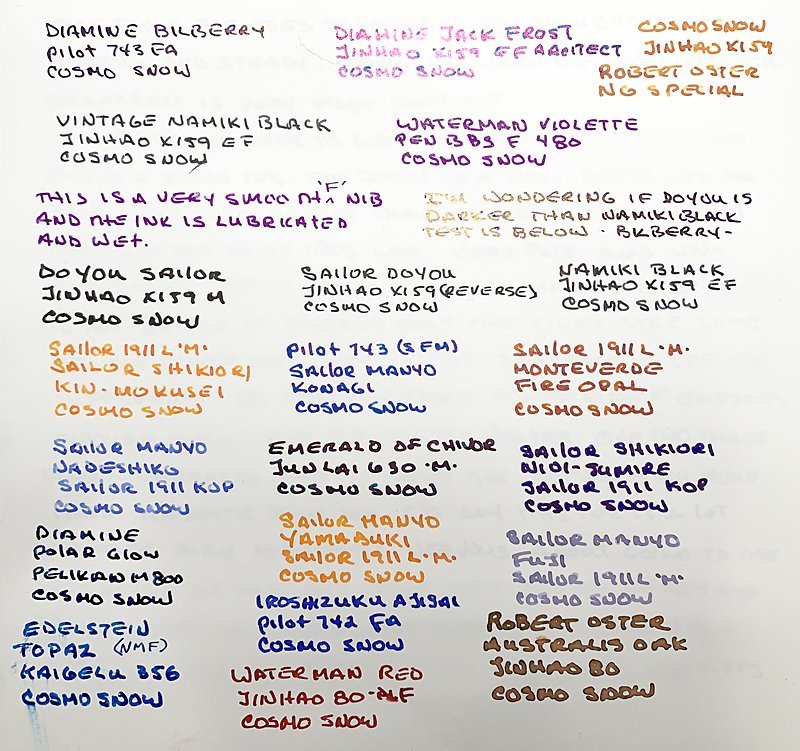 DIAMINE BILBERRY
PILOT 743 FA
COSMO SNOW
DIAMINE JACK FROST
JINHAO X159 EF ARCITECT
COSMO SNOW
COSMO SNOW
JINHAO X159
ROBERT OSTER
NG SPECIAL
VINTAGE NAMIKI BLACK
JINHAO X159 EF
COSMO SNOW
WATERMAN VIOLETTE
PENBBS F 480
COSMO SNOW
THIS IS A VERY SMOOTH 'F' NIB
AND THE INK IS LUBRICATED
AND WET.
I'M WONDERING IF DOYOU IS
DARKER THAN NAMIKI BLACK
TEST IS BELOW - BILBERRY -
DOYOU SAILOR
JINHAO X159 M
COSMO SNOW
SAILOR DOYOU
JINHAO X159 (REVERSE)
COSMO SNOW
NAMIKI BLACK
JINHAO X159 EF
COSMO SNOW
SAILOR 1911 L·M·
SAILOR SHIKIORI
KIN-MOKUSEI
COSMO SNOW
PILOT 743 (SFM)
SAILOR MANYO
KONAGI
COSMO SNOW
SAILOR 1911 L·M·
MONTEVERDE
FIRE OPAL
COSMO SNOW
SAILOR MANYO
NADESHIKO
SAILOR 1911 KOP
COSMO SNOW
EMERALD OF CHIVOR
JUNLAI 630 ·M·
COSMO SNOW
SAILOR SHIKIORI
NIOI-SUMIRE
SAILOR 1911 KOP
COSMO SNOW
DIAMINE
POLAR GLOW
PELIKAN M800
COSMO SNOW
SAILOR MANYO
YAMABUKI
SAILOR 1911 L·M·
COSMO SNOW
SAILOR MANYO
FUJI
SAILOR 1911 L·M·
COSMO SNOW
EDELSTEIN
TOPAZ (NMF)
KAIGELU 356
COSMO SNOW
IROSHIZUKU AJISAI
PILOT 742 FA
COSMO SNOW
WATERMAN RED
JINHAO 80
COSMO SNOW
ROBERT OSTER
AUSTRALIS OAK
JINHAO 80
COSMO SNOW